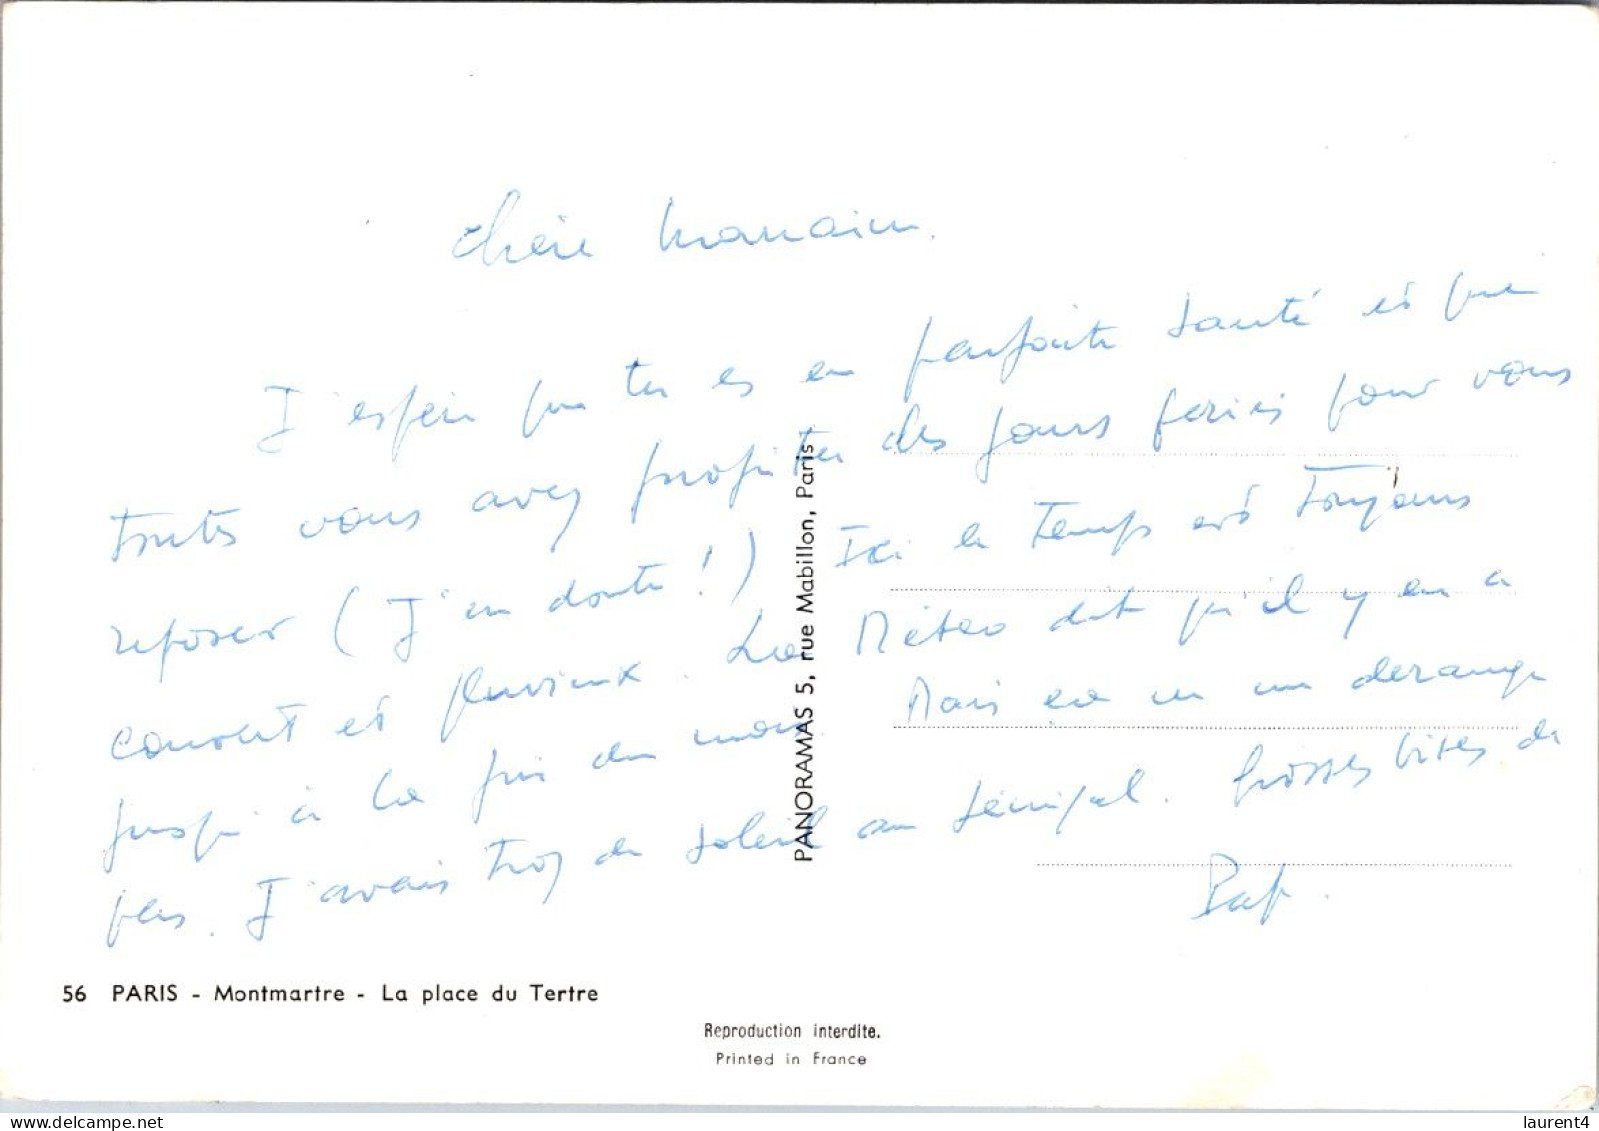 chère Maman.
J'espère que tu es en parfaite santé et que
toutes vous avez profiter des jours feries pour vous
reposer (J'en doute !) Ici le temps est toujours
couvert et pluvieux. La Météo dit qu'il y en a
jusqu'à la fin du mois Mais ce me derange
pas. J'avais trop de soleil au Sénégal. Grosses bises de
Pap.
PANORAMAS 5, rue Mabillon, Paris
56 PARIS - Montmartre - La place du Tertre
Reproduction interdite.
Printed in France
www.delcampe.net
laurent4